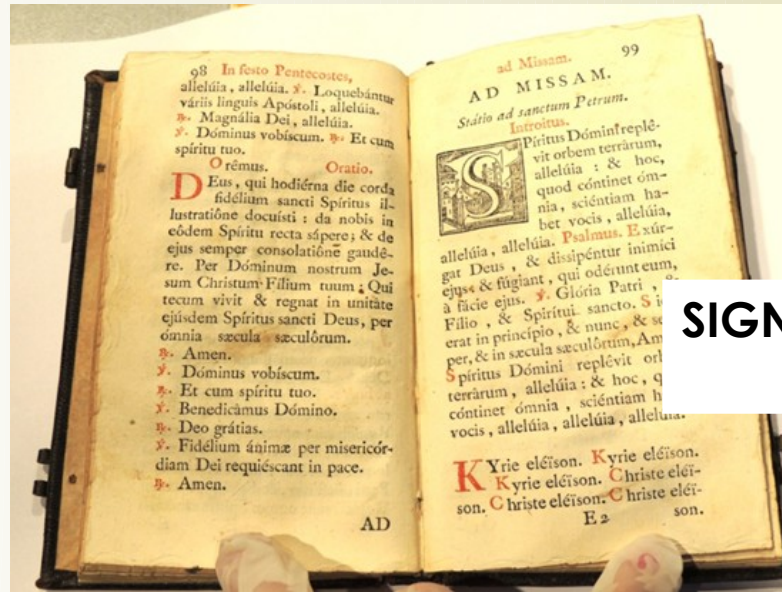 98 In festo Pentecostes,
allelúia, allelúia. ℣. Loquebántur
váriis linguis Apóstoli, allelúia.
℟. Magnália Dei, allelúia.
℣. Dóminus vobíscum. ℟. Et cum
spíritu tuo.
Orêmus. Oratio.
DEus, qui hodiérna die corda
fidélium sancti Spíritus il-
lustratiône docuísti : da nobis in
eôdem Spíritu recta sápere; & de
ejus semper consolatiône gaudê-
re. Per Dóminum nostrum Je-
sum Christum Fílium tuum : Qui
tecum vivit & regnat in unitâte
ejúsdem Spíritus sancti Deus, per
ómnia sæcula sæculôrum.
℟. Amen.
℣. Dóminus vobíscum.
℟. Et cum spíritu tuo.
℣. Benedicàmus Dómino.
℟. Deo grátias.
℣. Fidélium ánimæ per misericór-
diam Dei requiéscant in pace.
℟. Amen.
AD
ad Missam. 99
AD MISSAM.
Státio ad sanctum Petrum.
Introitus.
SPíritus Dómini replê-
vit orbem terràrum,
allelúia : & hoc,
quod cóntinet óm-
nia, sciéntiam ha-
bet vocis, allelúia,
allelúia, allelúia. Psalmus. Exúr-
gat Deus, & dissipéntur inimíci
ejus : & fúgiant, qui odérunt eum,
à fácie ejus. ℣. Glória Patri,
Fílio, & Spirítui sancto.
erat in princípio, & nunc, &
per, & in sæcula sæculôrum, Am
Spíritus Dómini replêvit
terràrum, allelúia : & hoc,
cóntinet ómnia, sciéntiam
vocis, allelúia, allelúia, allelúia.
KYrie eléïson. Kyrie eléïson.
Kyrie eléïson. Christe eléï-
son. Christe eléïson. Christe eléï-
E 2 son.
SIGN